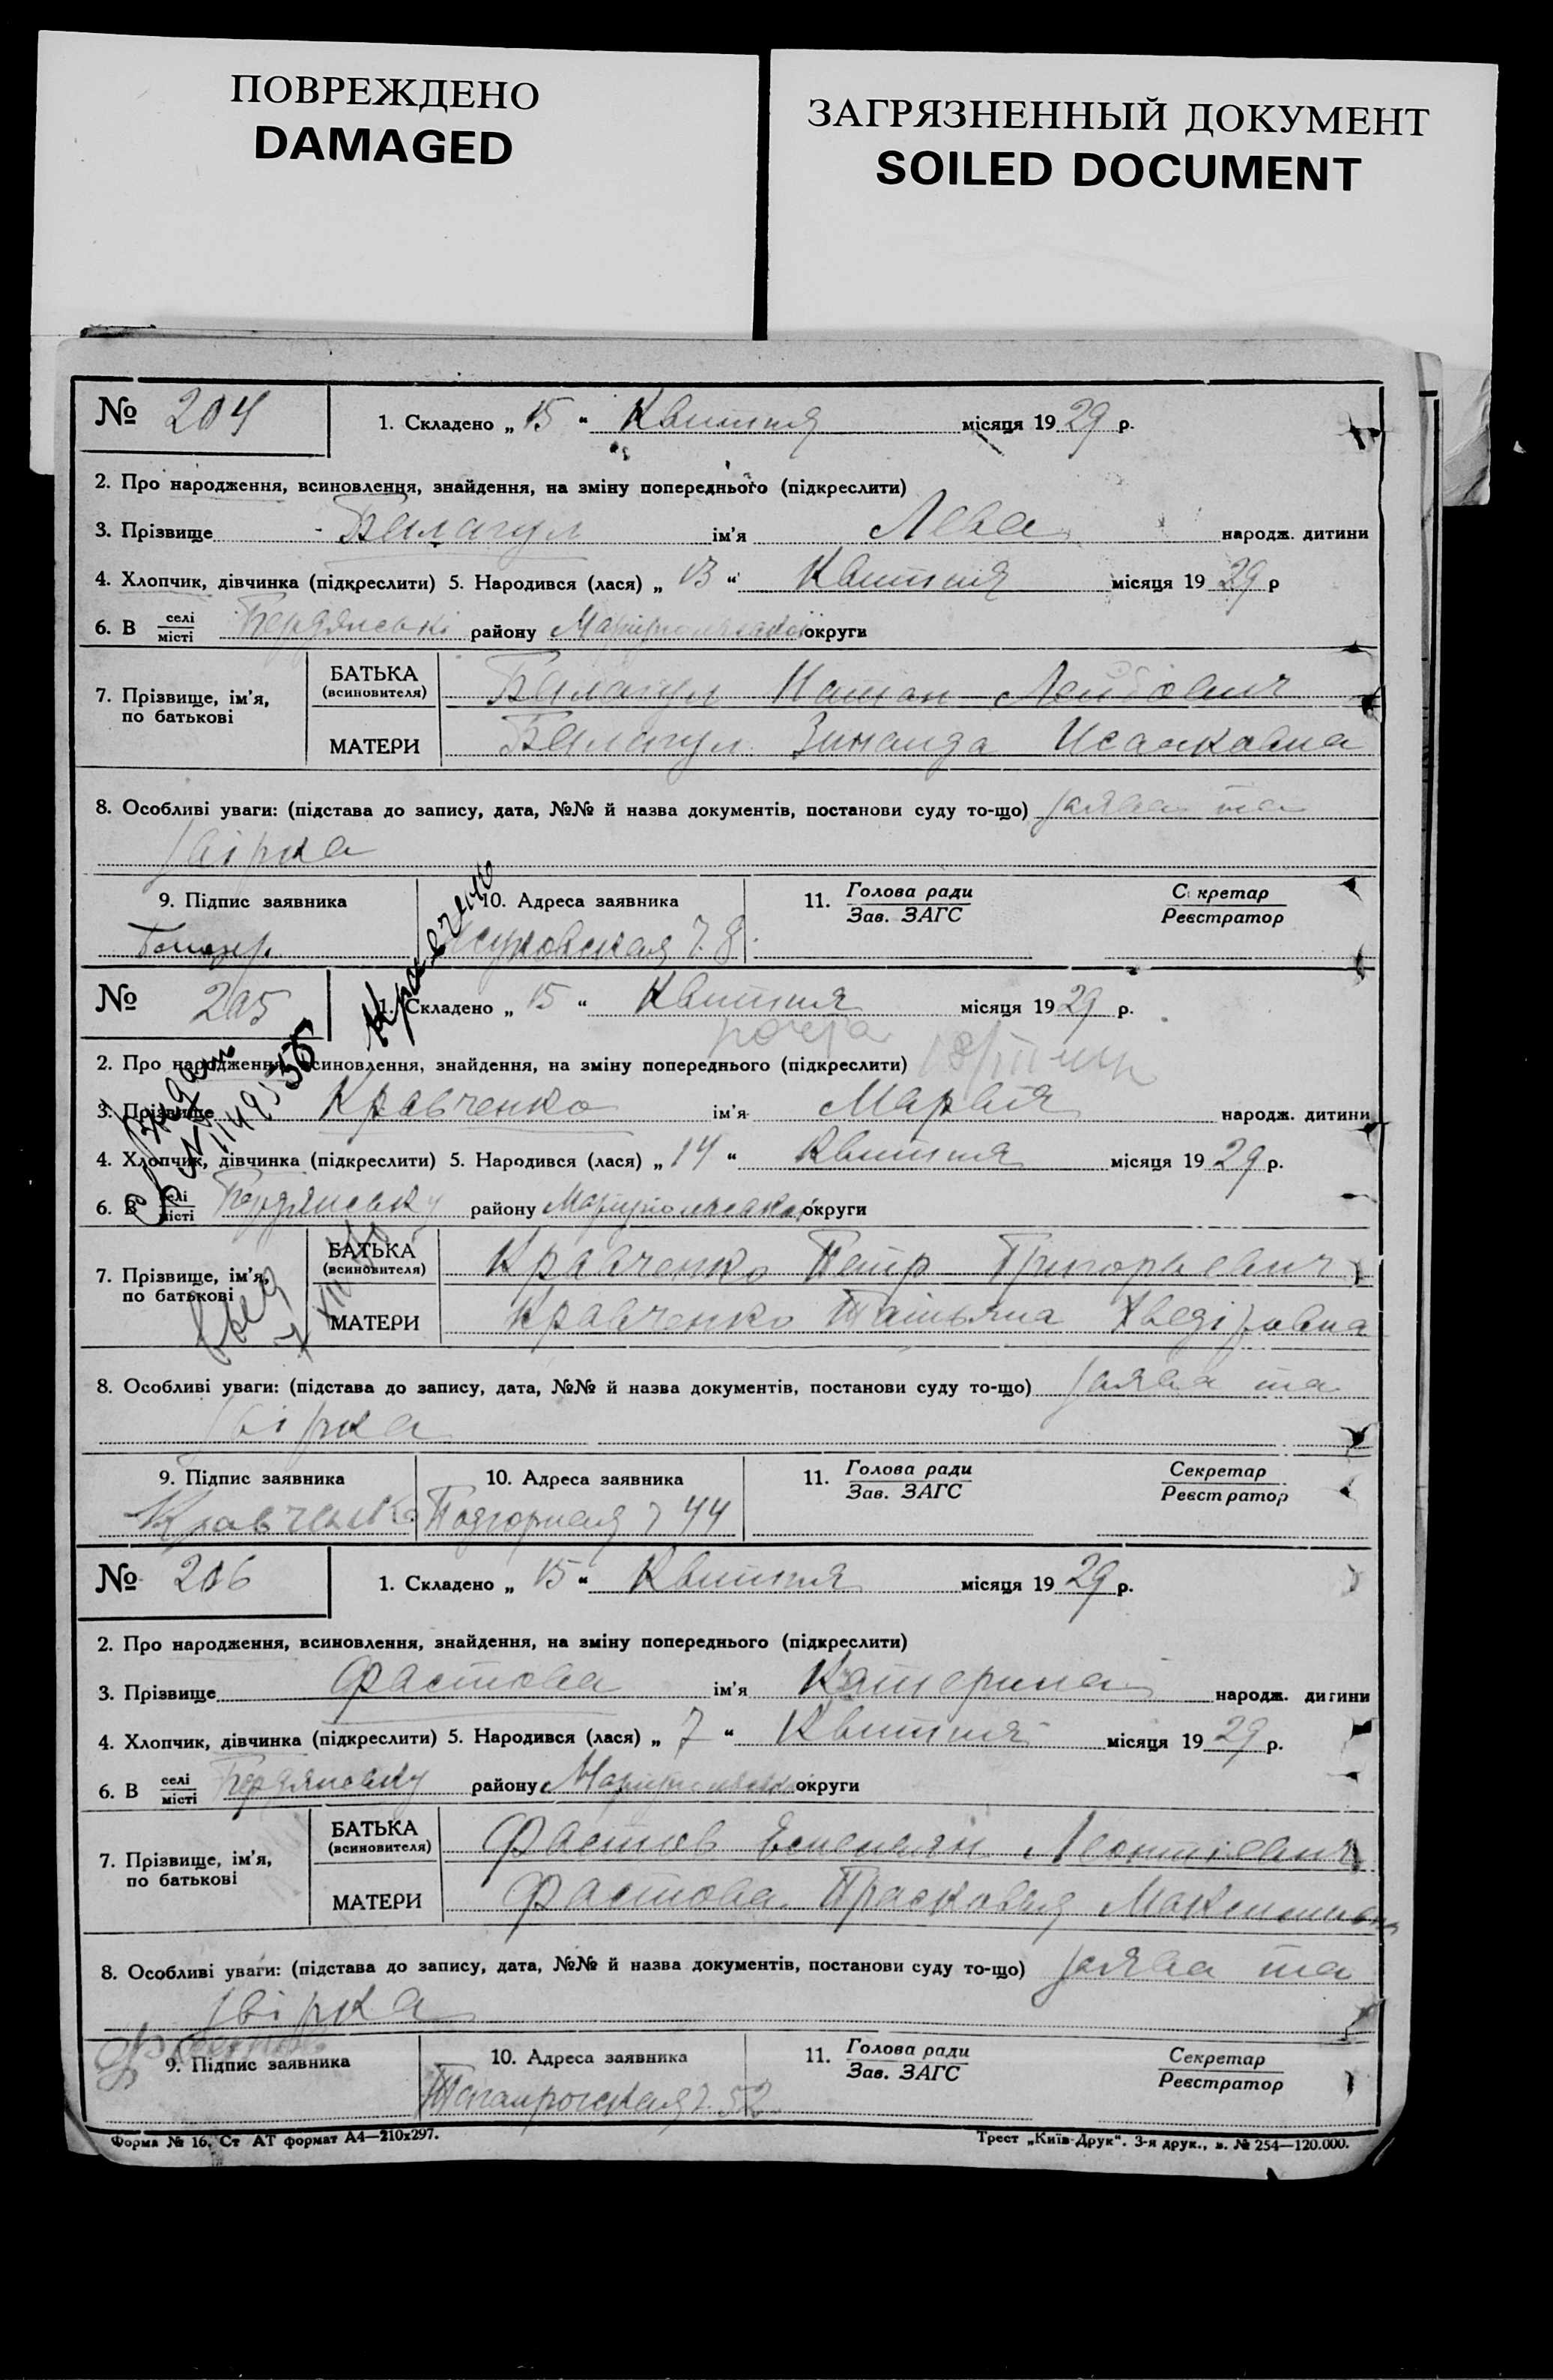 ПОВРЕЖДЕНО
DAMAGED
ЗАГРЯЗНЕННЫЙ ДОКУМЕНТ
SOILED DOCUMENT
№ 204 1. Складено „ 15 “ Квитня місяця 19 29 р.
2. Про народження, всиновлення, знайдення, на зміну попереднього (підкреслити)
3. Прізвище Балагул ім'я Лева народж. дитини
4. Хлопчик, дівчинка (підкреслити) 5. Народився (лася) „ 13 “ Квитня місяця 19 29 р
6. В селі/місті Бердянські району Маріупольської округи
7. Прізвище, ім'я, по батькові БАТЬКА (всиновителя) Балагул Натан Лейбович
МАТЕРИ Балагул Зинаида Исааковна
8. Особливі уваги: (підстава до запису, дата, №№ й назва документів, постанови суду то-що) заява та
звірка
9. Підпис заявника 10. Адреса заявника 11. Голова ради/Зав. ЗАГС С кретар/Реєстратор
ч. 8
№ 205 1. Складено „ 15 “ Квитня місяця 19 29 р.
2. Про народження, всиновлення, знайдення, на зміну попереднього (підкреслити)
3. Прізвище Кравченко ім'я Марія народж. дитини
4. Хлопчик, дівчинка (підкреслити) 5. Народився (лася) „ 14 “ Квитня місяця 19 29 р.
6. В селі/місті Бердянську району Маріупольської округи
7. Прізвище, ім'я, по батькові БАТЬКА (всиновителя) Кравченко Петр Григорьевич
МАТЕРИ Кравченко Татьяна Хведіровна
8. Особливі уваги: (підстава до запису, дата, №№ й назва документів, постанови суду то-що) заява та
звірка
9. Підпис заявника 10. Адреса заявника 11. Голова ради/Зав. ЗАГС Секретар/Реєстратор
Кравченко Подгорная ч 44
№ 206 1. Складено „ 15 “ Квитня місяця 19 29 р.
2. Про народження, всиновлення, знайдення, на зміну попереднього (підкреслити)
3. Прізвище Фастова ім'я Катерина народж. дитини
4. Хлопчик, дівчинка (підкреслити) 5. Народився (лася) „ 7 “ Квитня місяця 19 29 р.
6. В селі/місті Бердянську району Маріупольської округи
7. Прізвище, ім'я, по батькові БАТЬКА (всиновителя) Фастов Емельян Леонтієвич
МАТЕРИ Фастова Прасковья Максимовна
8. Особливі уваги: (підстава до запису, дата, №№ й назва документів, постанови суду то-що) заява та
звірка
Фастов
9. Підпис заявника 10. Адреса заявника 11. Голова ради/Зав. ЗАГС Секретар/Реєстратор
Таганрогская ч. 52
Форма № 16. Ст АТ формат А4—210х297. Трест „Київ-Друк“. 3-я друк., з. № 254—120.000.